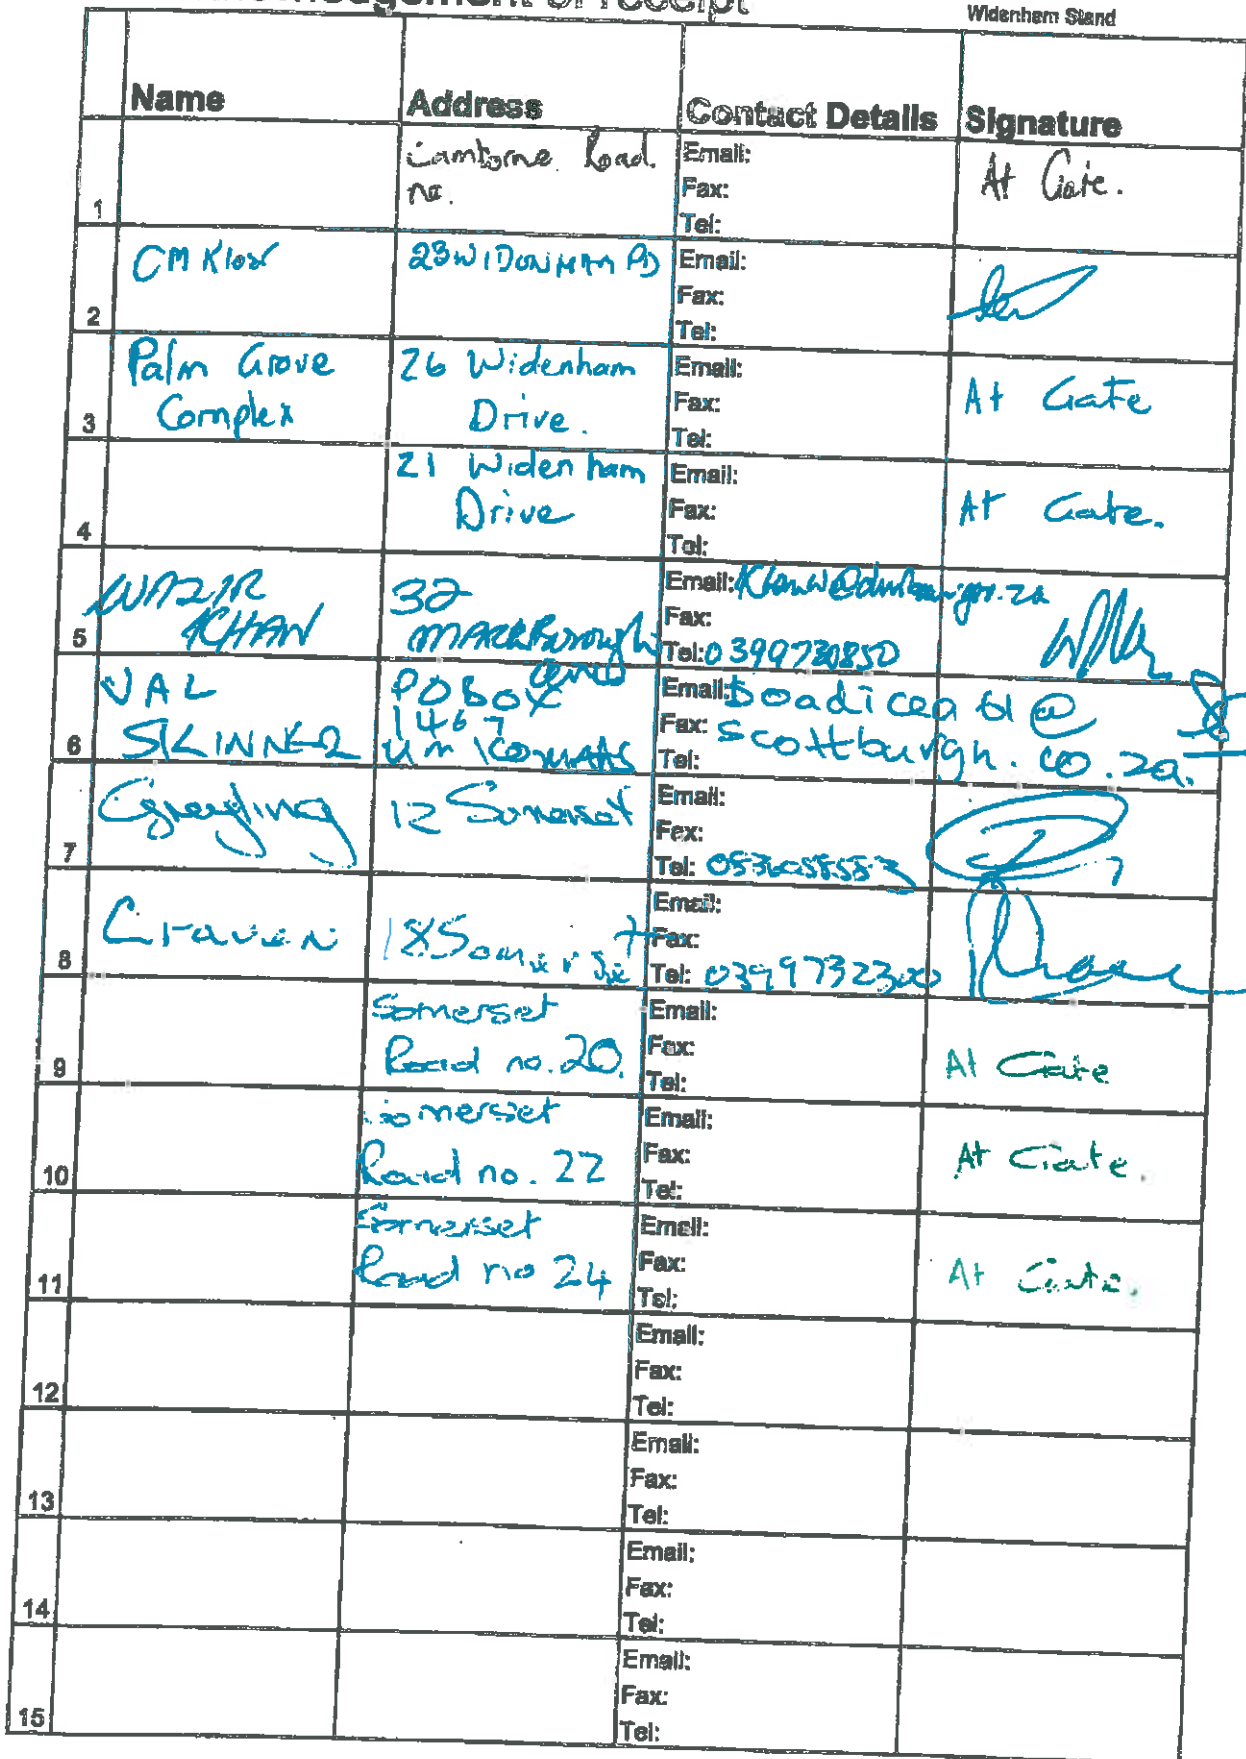 of receipt
Widenham Stand
Name Address Contact Details Signature
1 Camborne Road. no. Email: Fax: Tel: At Gate.
2 CM Email: Fax: Tel:
3 Palm Grove Complex 26 Widenham Drive. Email: Fax: Tel: At Gate
4 21 Widenham Drive Email: Fax: Tel: At Gate.
5 WAZIR KHAN 32 Email: Fax: Tel: 0399730850
6 VAL SKINNER PO BOX 1467 UMKOMAAS Email: boadicea61@ Fax: scottburgh.co.za. Tel:
7 Greyling 12 Somerset Email: Fax: Tel:
8 Craven 18 Somerset Email: Fax: Tel: 0399732300
9 Somerset Road no. 20. Email: Fax: Tel: At Gate
10 Somerset Road no. 22 Email: Fax: Tel: At Gate.
11 Somerset Road no 24 Email: Fax: Tel: At Gate.
12 Email: Fax: Tel:
13 Email: Fax: Tel:
14 Email: Fax: Tel:
15 Email: Fax: Tel: